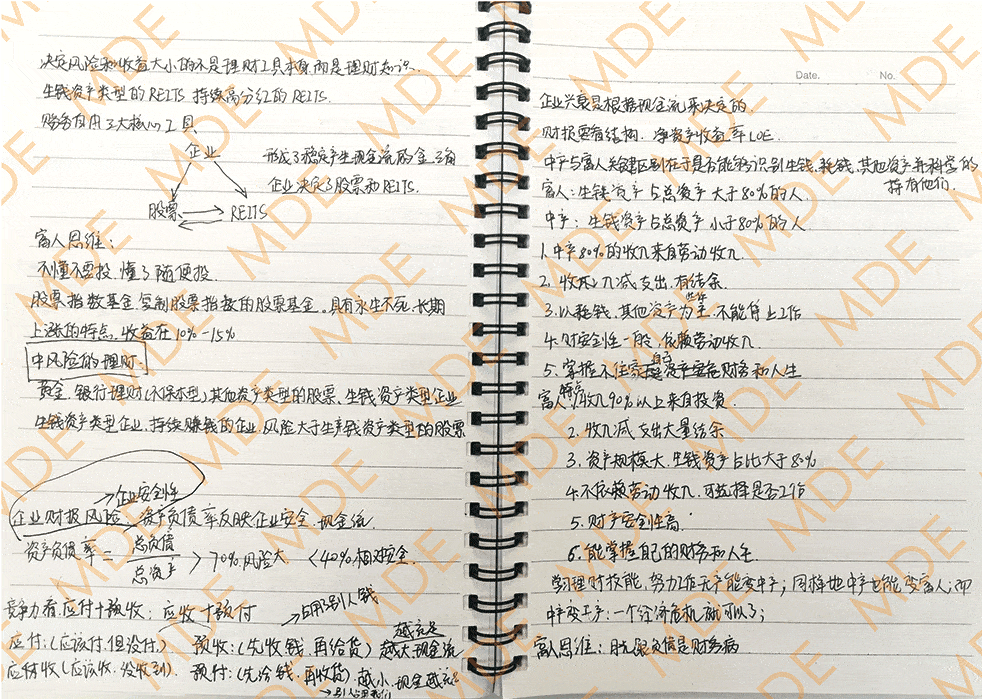 决定风险和收益大小的不是理财工具本身而是理财知识.
生钱资产类型的REITS 持续高分红的REITS.
财务自由三大核心工具
企业
形成了稳定产生现金流的金三角
企业决定了股票和REITS.
股票 REITS
富人思维:
不懂不要投.懂了随便投.
股票指数基金.复制股票指数的股票基金.具有永生不死.长期
上涨的特点.收益在10%-15%
中风险的理财.
黄金 银行理财(不保本型)其他资产类型的股票.生钱资产类型企业
生钱资产类型企业.持续赚钱的企业.风险大于生钱资产类型的股票
→企业安全性
企业财报风险 资产负债率反映企业安全.现金流
资产负债率= 总负债 / 总资产 >70%风险大 <40%相对安全.
竞争力看:应付+预收: 应收+预付 →占用别人钱
应付:(应该付.但没付). 预收:(先收钱.再给货) 越大现金流越充足
应收(应该收.没收到). 预付:(先给钱.再收货)越小.现金越充足
→别人占用我们
Date. No.
企业兴衰是根据现金流来决定的.
财报要看结构.净资产收益率LOE.
中产与富人关键区别在于是否能够识别生钱.耗钱.其他资产并科学的
持有他们.
富人:生钱资产占总资产大于80%的人.
中产:生钱资产占总资产小于80%的人
1.中产80%的收入来自劳动收入.
2.收入减支出.有结余.
3.以耗钱.其他资产为主.不能停止工作
4.财安全性一般.依赖劳动收入.
5.掌握不住自己财务和人生
富人特点:1收入90%以上来自投资.
2.收入减支出大量结余
3.资产规模大.生钱资产占比大于80%
4.不依赖劳动收入.可选择是否工作
5.财产安全性高.
6.能掌握自己的财务和人生
学习理财技能.努力工作无产能变中产;同样地中产也能变富人;而
中产变无产:一个经济危机就可以了;
富人思维:负债是财务病
MDE